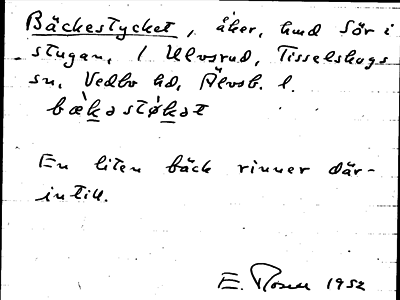 Bäckestycket, åker, hmd Sör i
stugan, / Ulvsrud, Tisselskogs
sn, Vedbo hd, Älvsb. l.
bæ̀kəstø̀kət
En liten bäck rinner där-
intill.
E. Rosell 1952